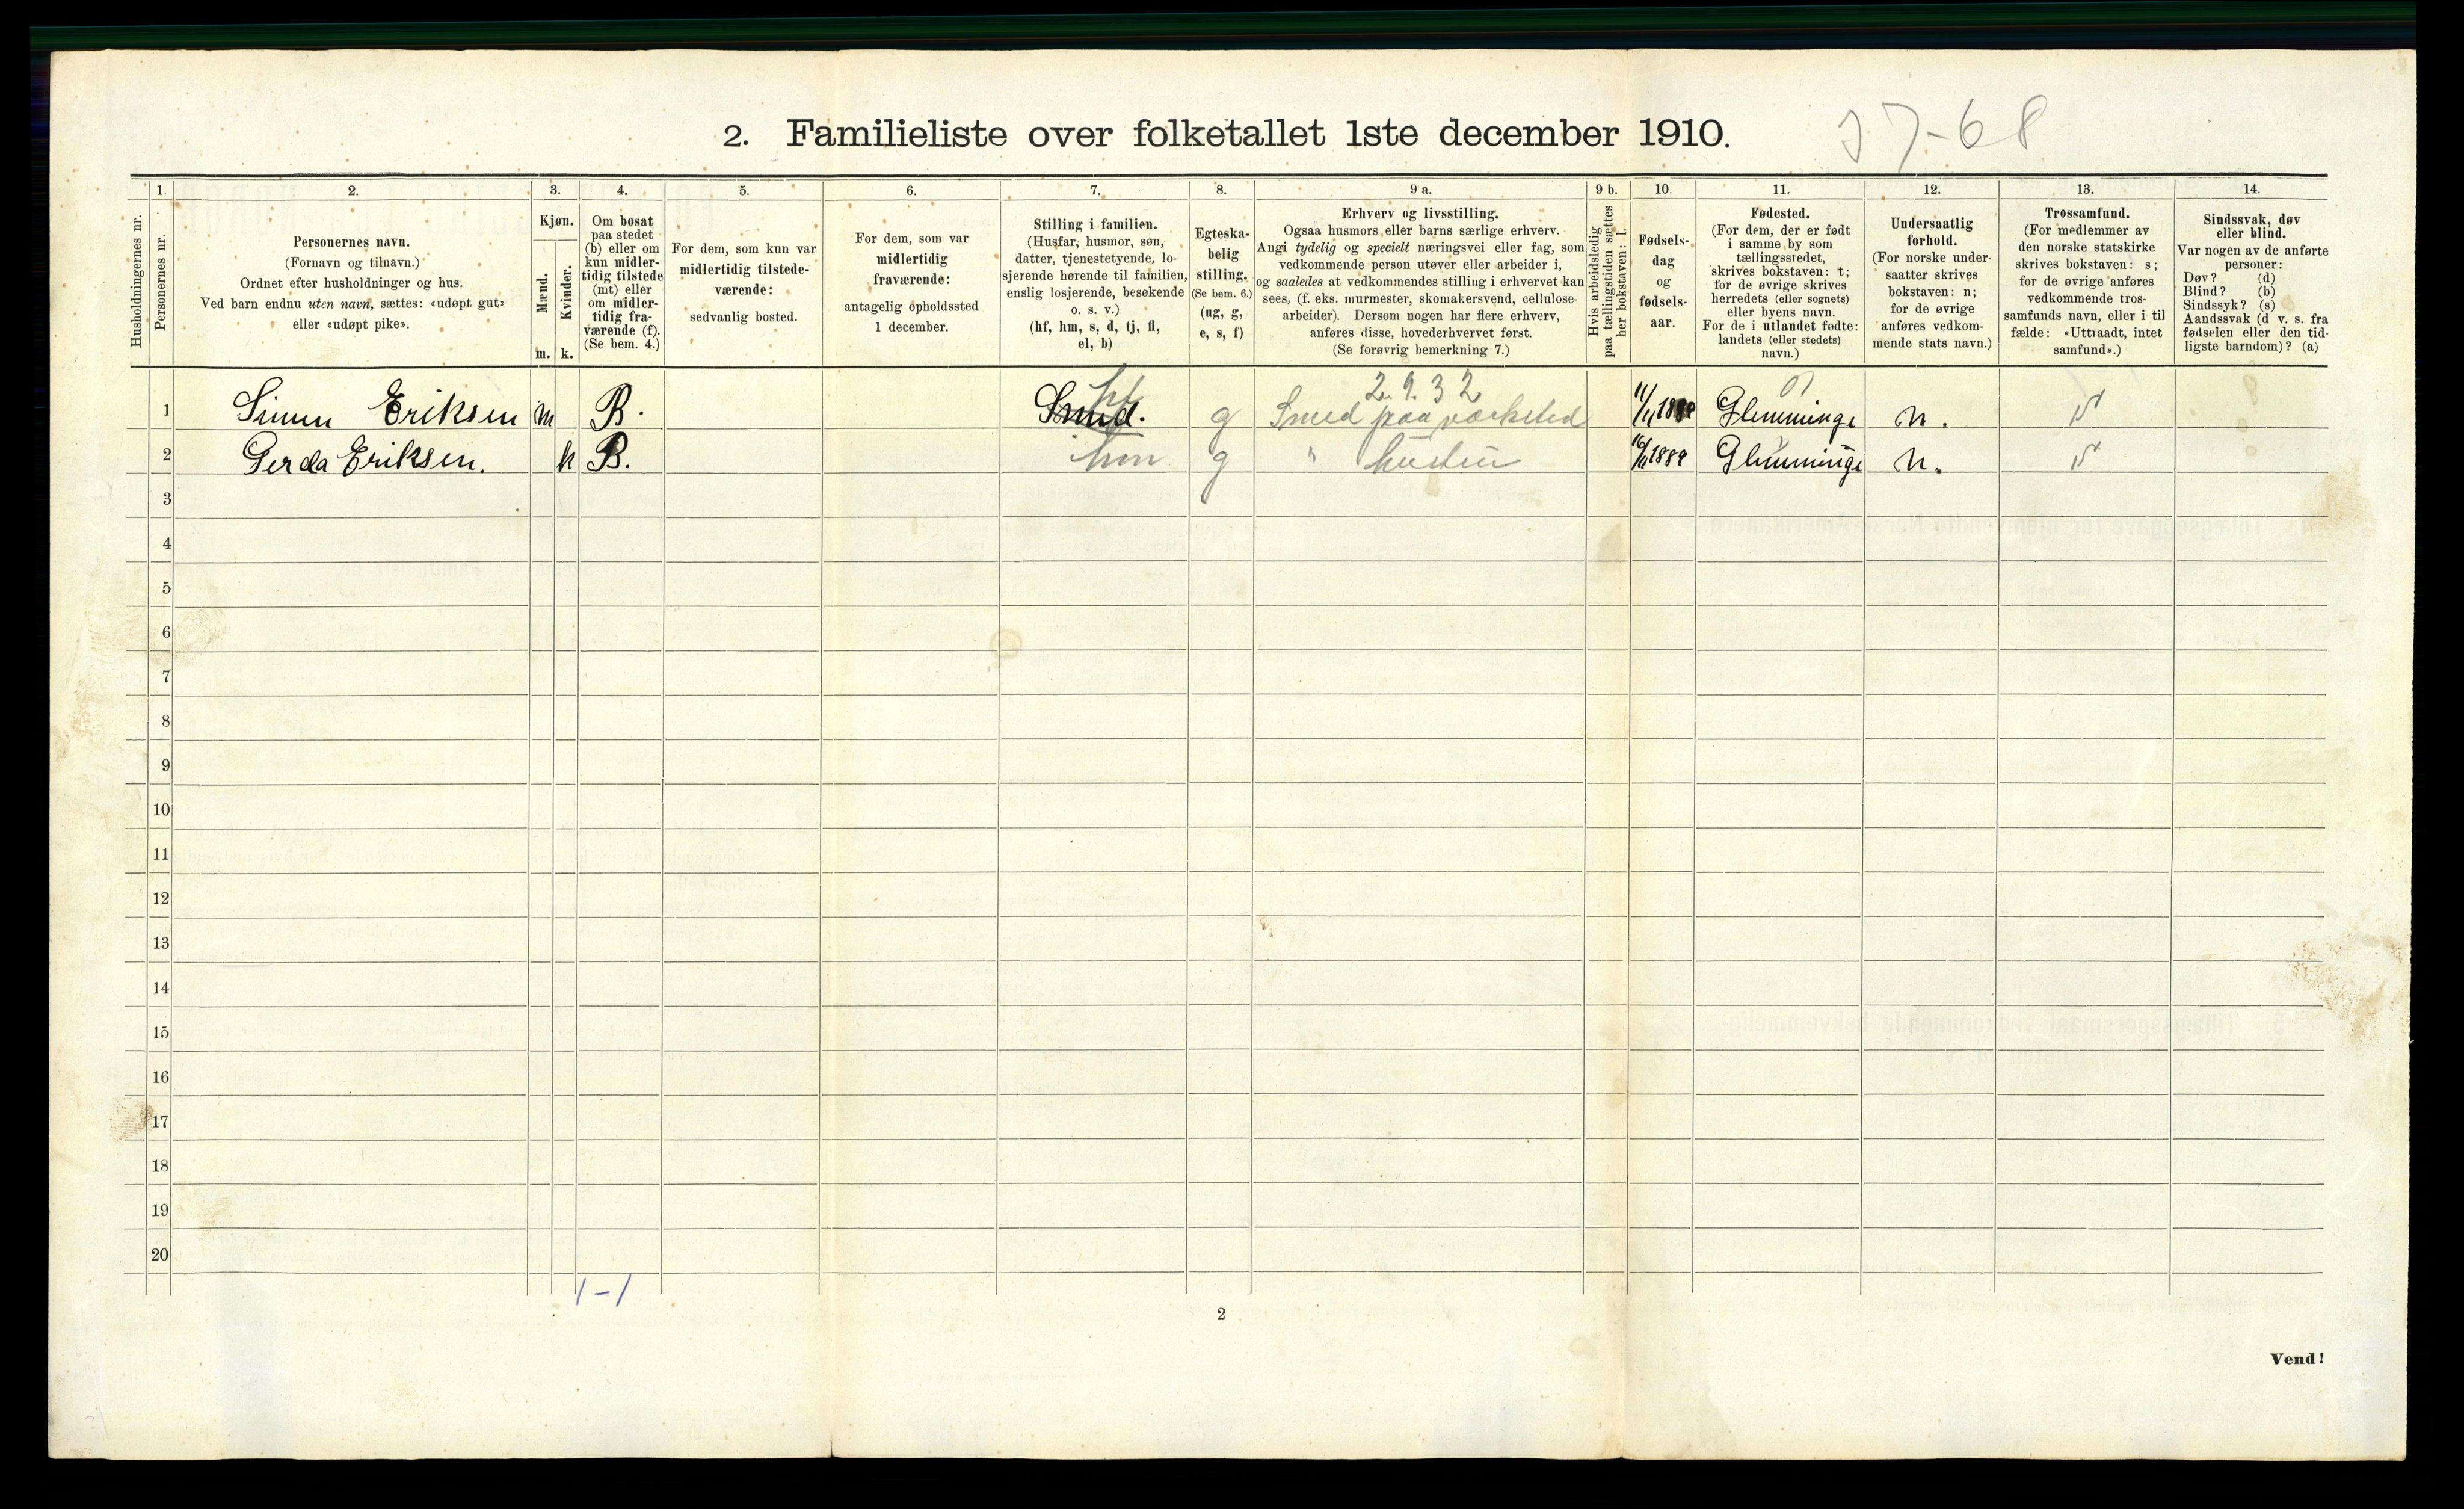 2. Familieliste over folketallet 1ste december 1910.
37-68
Husholdningernes nr.
1.
Personernes nr.
2.
Personernes navn.
(Fornavn og tilnavn.)
Ordnet efter husholdninger og hus.
Ved barn endnu uten navn, sættes: «udøpt gut»
eller «udøpt pike».
3.
Kjøn.
Mænd.
m.
Kvinder.
k.
4.
Om bosat
paa stedet
(b) eller om
kun midler-
tidig tilstede
(mt) eller
om midler-
tidig fra-
værende (f).
(Se bem. 4.)
5.
For dem, som kun var
midlertidig tilstede-
værende:
sedvanlig bosted.
6.
For dem, som var
midlertidig
fraværende:
antagelig opholdssted
1 december.
7.
Stilling i familien.
(Husfar, husmor, søn,
datter, tjenestetyende, lo-
sjerende hørende til familien,
enslig losjerende, besøkende
o. s. v.)
(hf, hm, s, d, tj, fl,
el, b)
8.
Egteska-
belig
stilling.
(Se bem. 6.)
(ug, g,
e, s, f)
9 a.
Erhverv og livsstilling.
Ogsaa husmors eller barns særlige erhverv.
Angi tydelig og specielt næringsvei eller fag, som
vedkommende person utøver eller arbeider i,
og saaledes at vedkommendes stilling i erhvervet kan
sees, (f. eks. murmester, skomakersvend, cellulose-
arbeider). Dersom nogen har flere erhverv,
anføres disse, hovederhvervet først.
(Se forøvrig bemerkning 7.)
9 b.
Hvis arbeidsledig
paa tællingstiden sættes
her bokstaven: l.
10.
Fødsels-
dag
og
fødsels-
aar.
11.
Fødested.
(For dem, der er født
i samme by som
tællingsstedet,
skrives bokstaven: t;
for de øvrige skrives
herredets (eller sognets)
eller byens navn.
For de i utlandet fødte:
landets (eller stedets)
navn.)
12.
Undersaatlig
forhold.
(For norske under-
saatter skrives
bokstaven: n;
for de øvrige
anføres vedkom-
mende stats navn.)
13.
Trossamfund.
(For medlemmer av
den norske statskirke
skrives bokstaven: s;
for de øvrige anføres
vedkommende tros-
samfunds navn, eller i til
fælde: «Uttraadt, intet
samfund».)
14.
Sindssvak, døv
eller blind.
Var nogen av de anførte
personer:
Døv? (d)
Blind? (b)
Sindssyk? (s)
Aandssvak (d v. s. fra
fødselen eller den tid-
ligste barndom)? (a)
2.9.32
1 Simen Eriksen m B. Smed. hf g Smed paa værksted Glemminge n. s
2 Gerda Eriksen. k B. hm g " hustru Glemminge n. s
3
4
5
6
7
8
9
10
11
12
13
14
15
16
17
18
19
20
1-1
2
Vend!